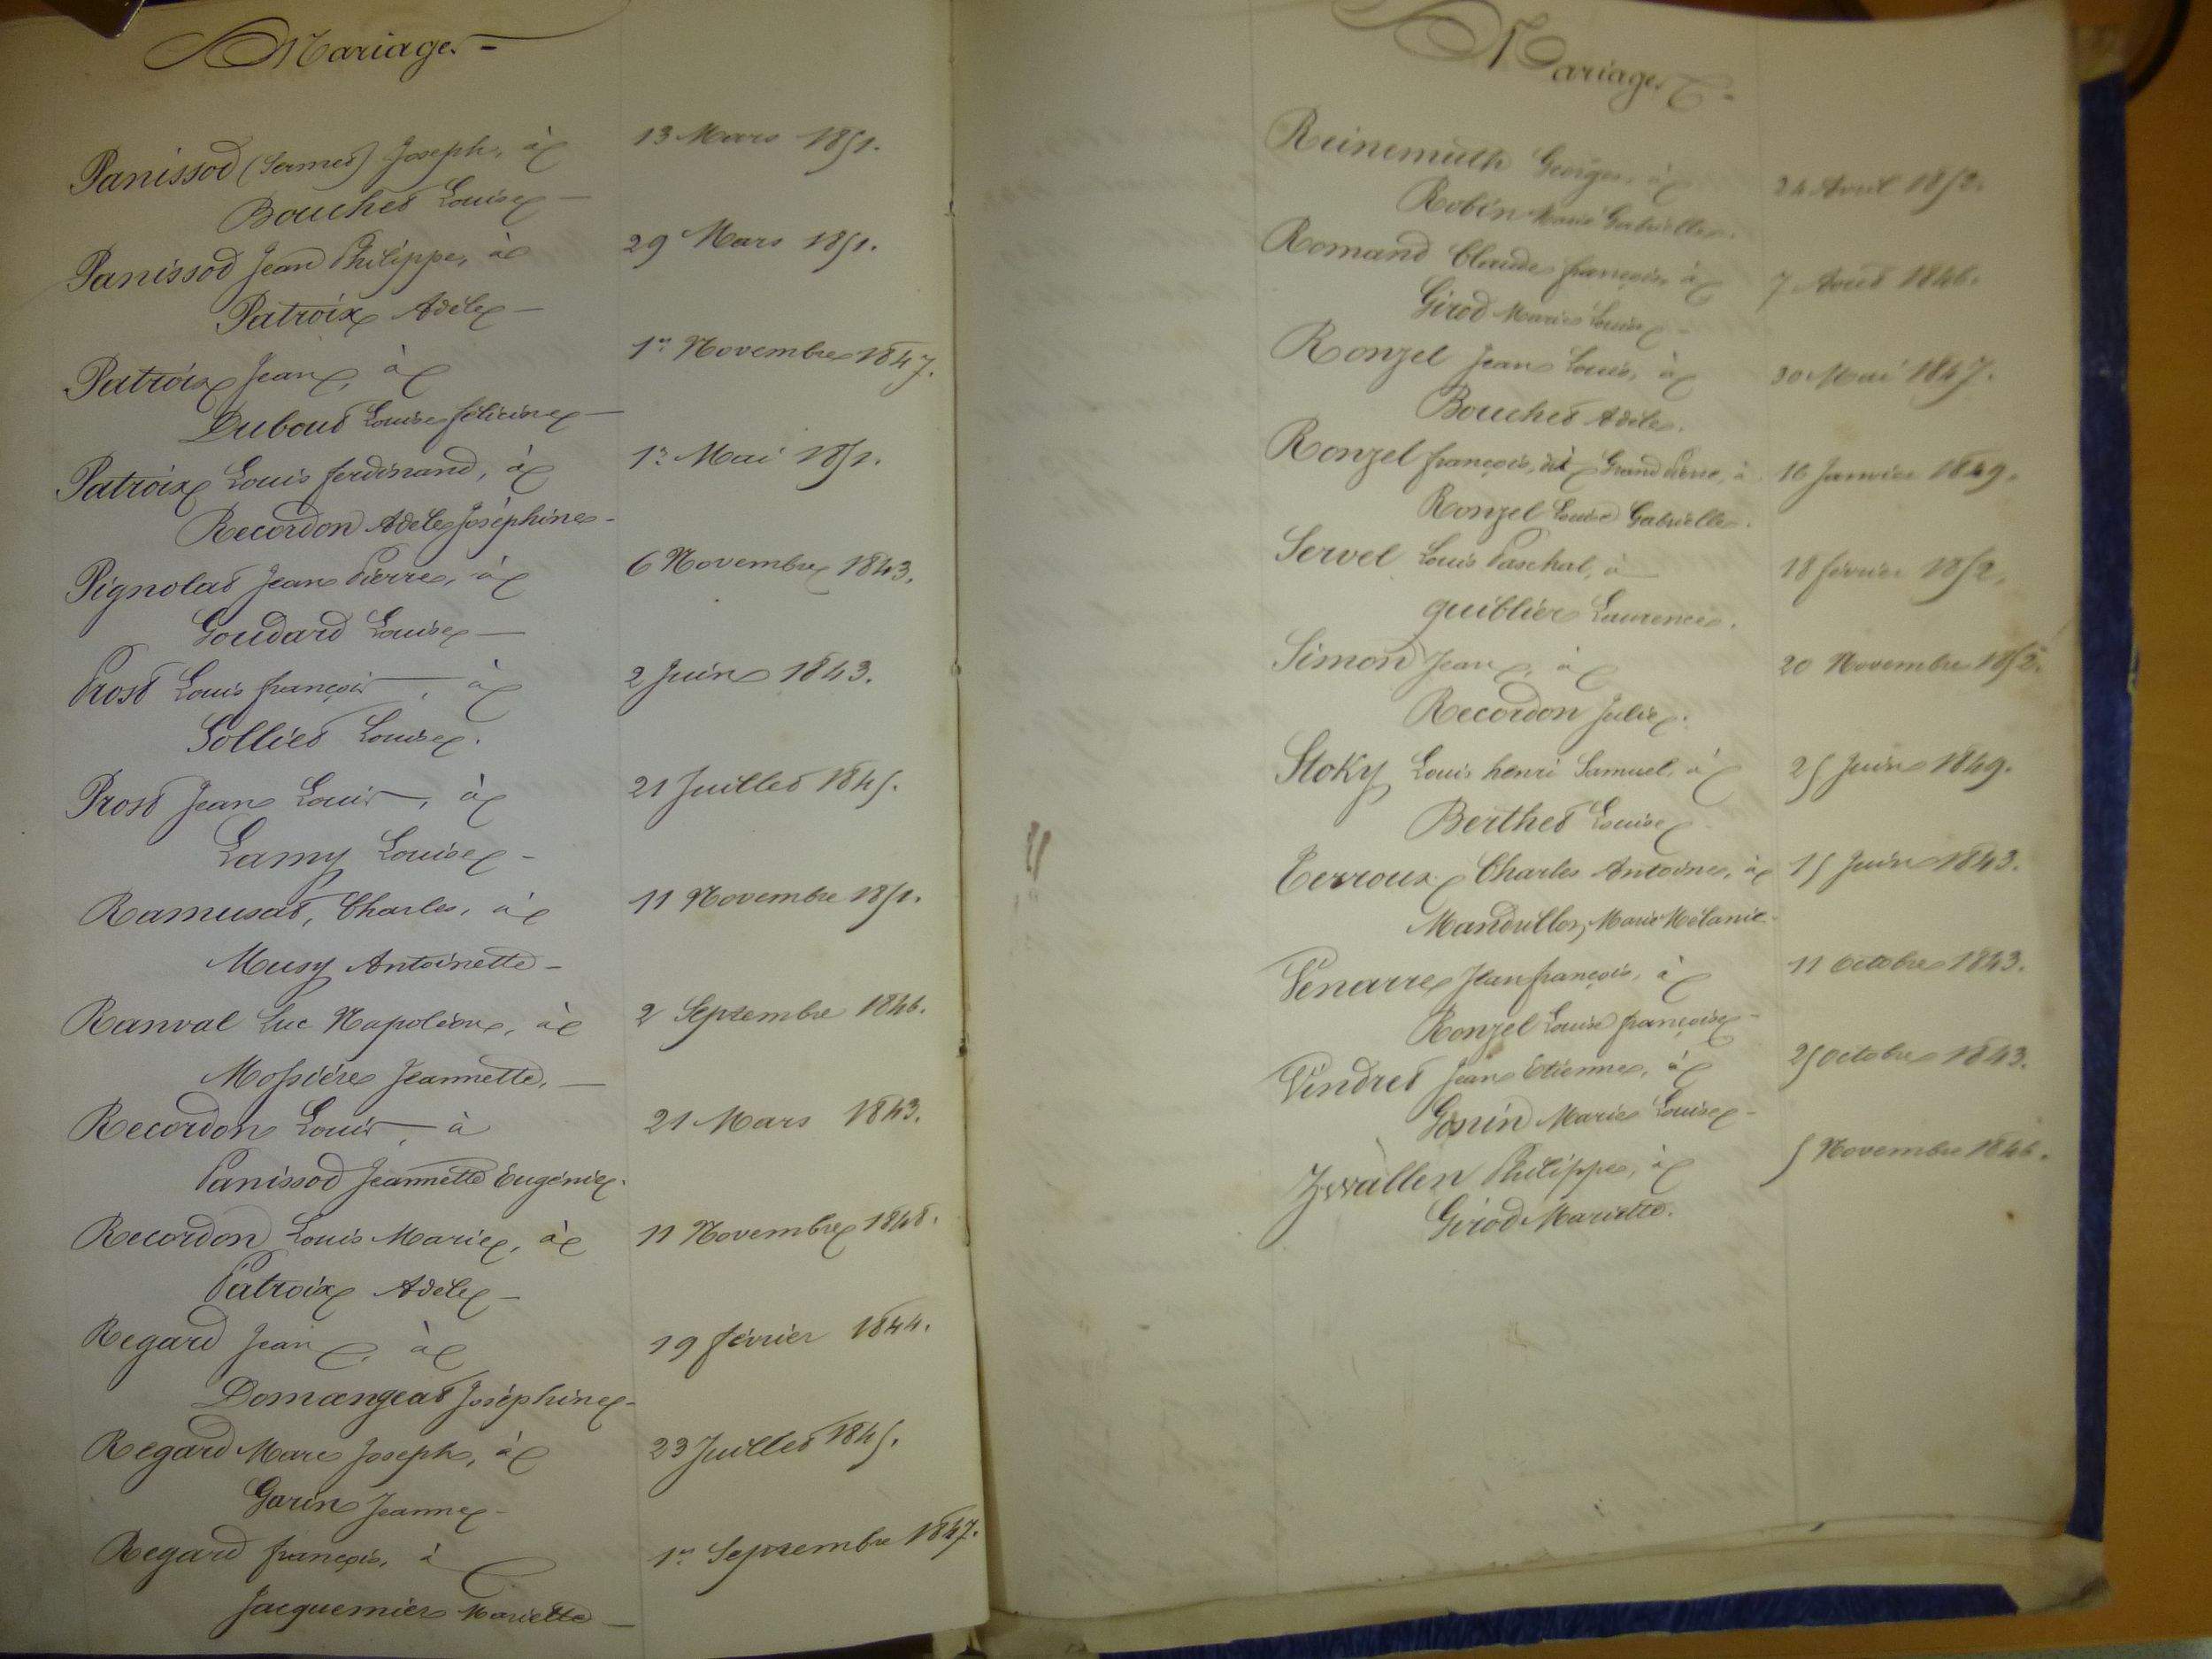 Mariages
Panissod (Sermet) Joseph, à 13 Mars 1851.
Bouchet Louise
Panissod Jean Philippe, à 29 Mars 1851.
Patroix Adèle
Patroix Jean, à 1er Novembre 1847.
Dubout Louise félicine
Patroix Louis ferdinand, à 1er Mai 1851.
Recordon Adèle Joséphine
Pignolat Jean Pierre, à 6 Novembre 1843.
Goudard Louise
Prost Louis françois, à 2 Juin 1843.
Golliet Louise.
Prost Jean Louis, à 21 Juillet 1845.
Lamy Louise
Ramusat, Charles, à 11 Novembre 1851.
Musy Antoinette
Ranval Luc Napoléon, à 2 Septembre 1846.
Mossière Jeannette,
Recordon Louis, à 21 Mars 1843.
Panissod Jeannette Eugénie.
Recordon Louis Marie, à 11 Novembre 1848.
Patroix Adèle
Regard Jean, à 19 février 1844.
Domangeat Joséphine
Regard Marc Joseph, à 23 Juillet 1845.
Garin Jeanne
Regard françois, à 1er Septembre 1847.
Jacquemier Mariette
Mariages
Reinemuth Georges, à 24 Avril 1852.
Robin Marie Gabrielle.
Romand Claude françois, à 7 Aout 1846.
Girod Marie Louise
Ronzel Jean Louis, à 30 Mai 1847.
Bouchet Adèle.
Ronzel françois, dit Grand Pierre, à 16 Janvier 1849.
Ronzel Louise Gabrielle.
Servel Louis Paschal, à 18 février 1852.
quiblier Laurence.
Simon Jean, à 20 Novembre 1852.
Recordon Julie.
Stoky Louis henri Samuel, à 25 Juin 1849.
Berthet Louise
Terroux Charles Antoine, à 15 Juin 1843.
Mandrillon, Marie Mélanie
Venarre Jean françois, à 11 Octobre 1843.
Ronzel Louise françoise
Vindret Jean Etienne, à 25 Octobre 1843.
Gonin Marie Louise
Zwallen Philippe, à 5 Novembre 1846.
Girod Mariette.